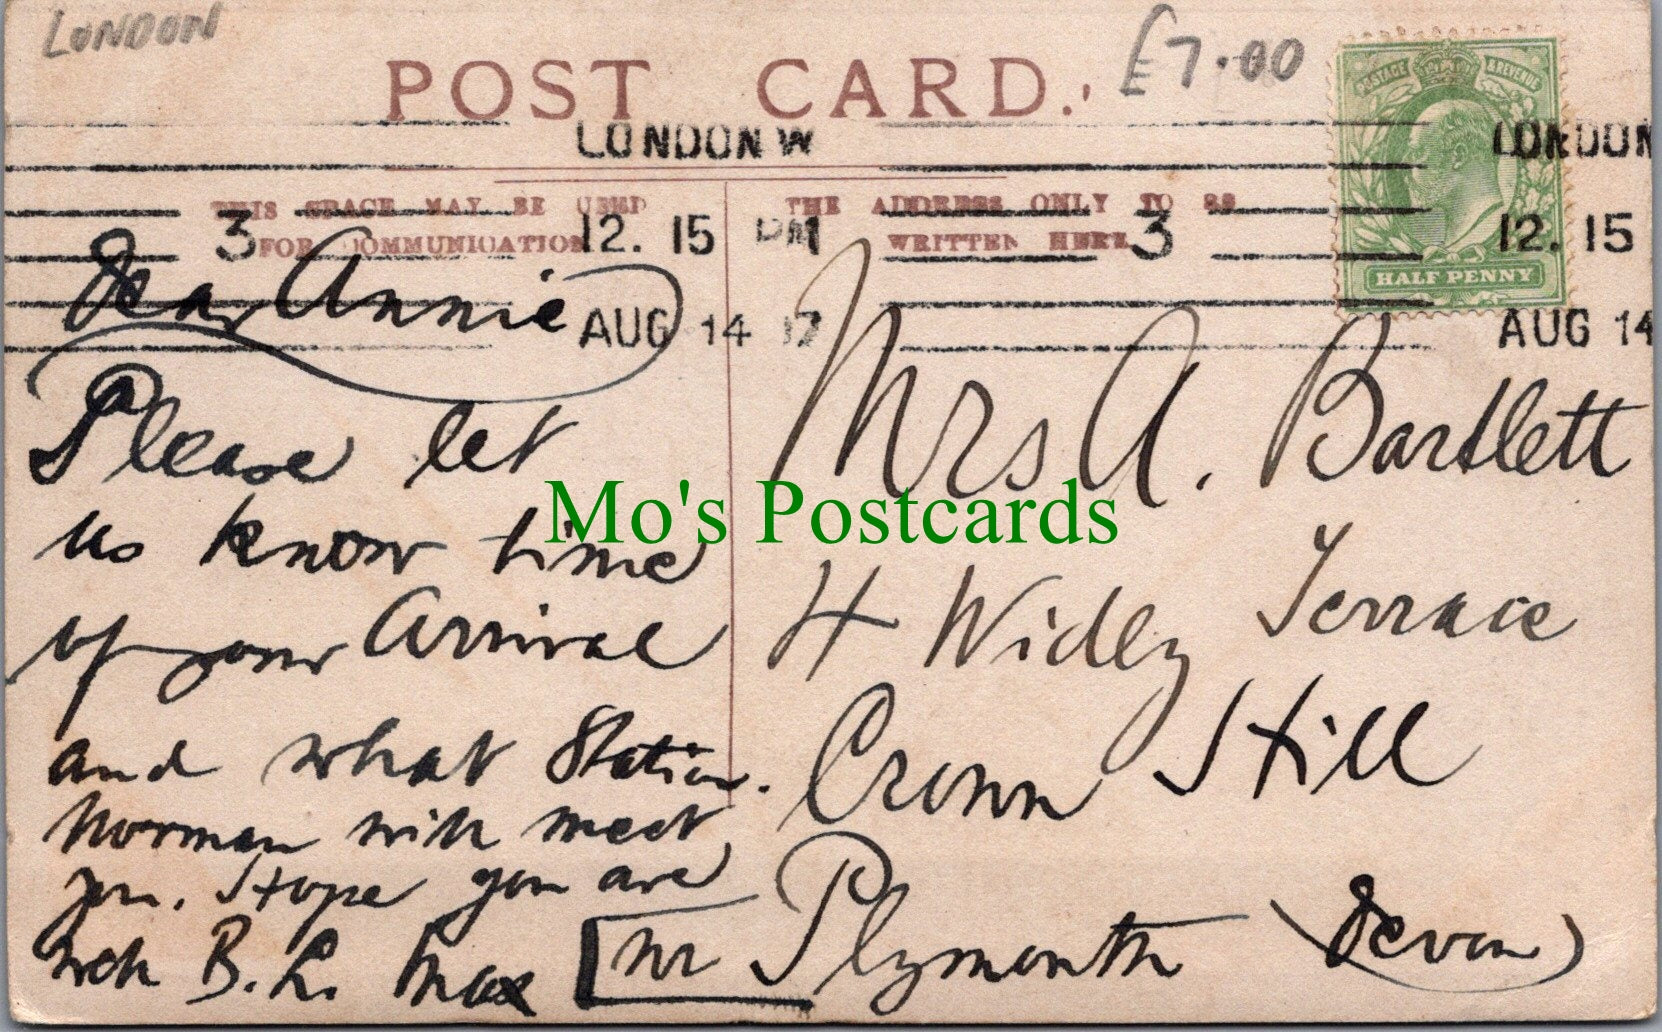 LONDON
£7.00
POST CARD.
LONDON W
LONDON
THIS SPACE MAY BE USED
FOR COMMUNICATION
THE ADDRESS ONLY TO BE
WRITTEN HERE
3 12. 15 PM 3 12. 15
AUG 14
AUG 14
POSTAGE & REVENUE
HALF PENNY
Dear Annie
Please let
us know time
of your Arrival
and what Station.
Norman will meet
you. Hope you are
well B. L. Max
Mrs A. Bartlett
4 Widey Terrace
Crown Hill
[nr Plymouth (Devon)
Mo's Postcards